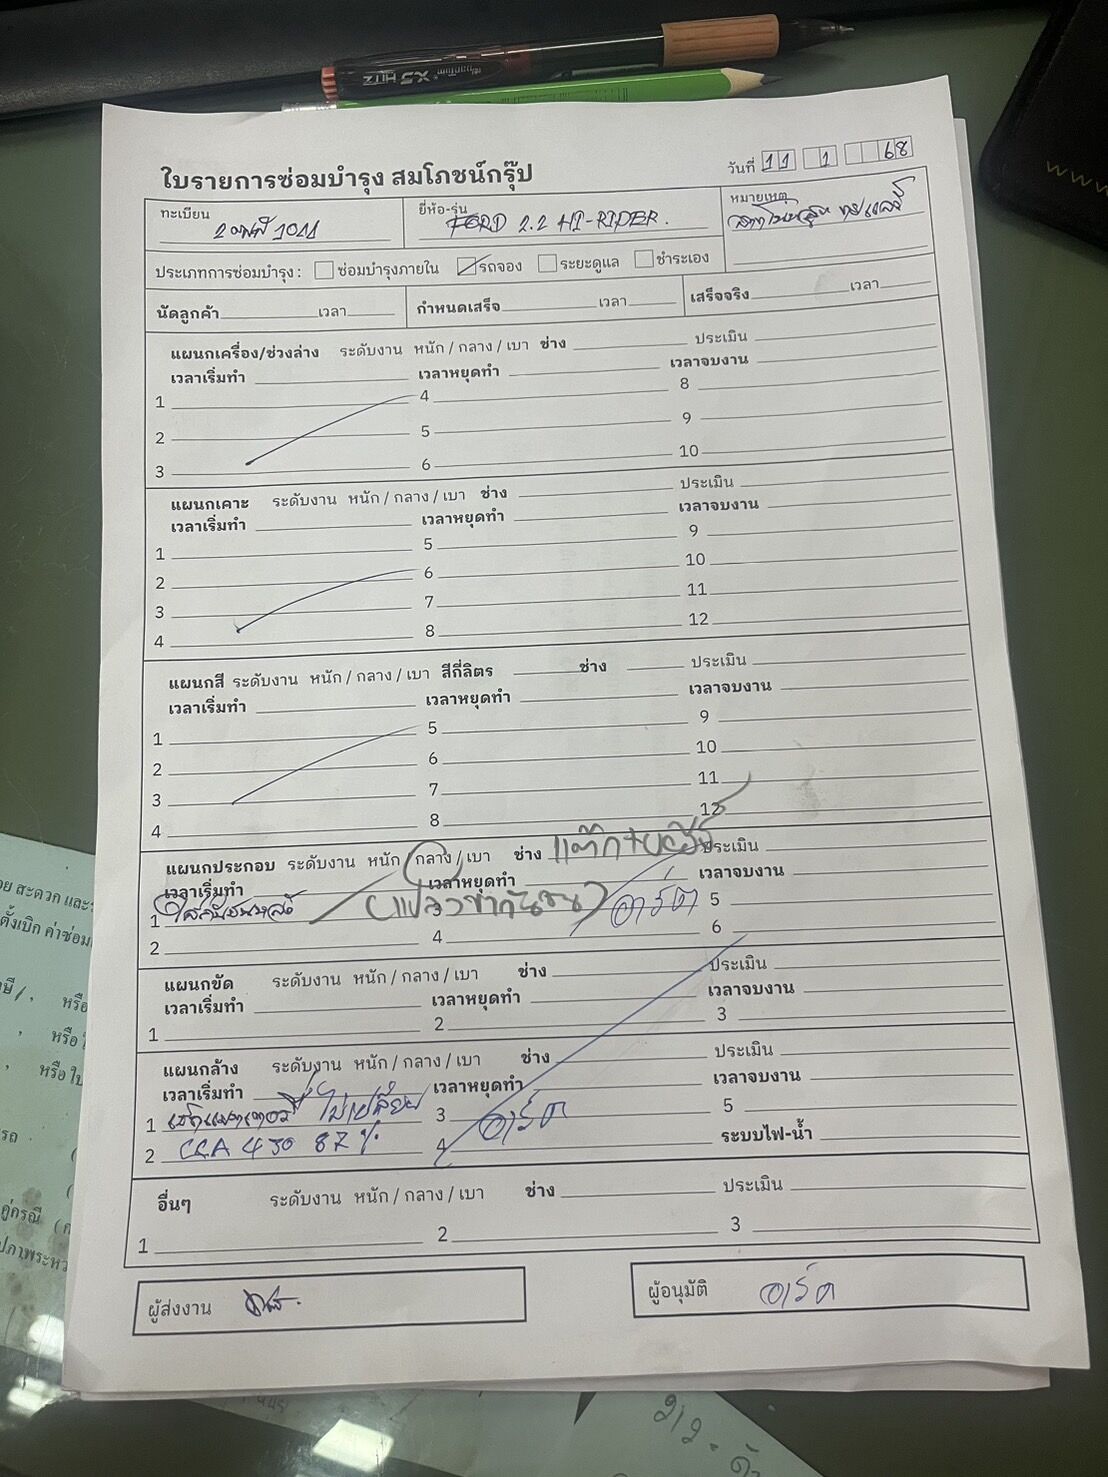 ใบรายการซ่อมบำรุง สมโภชน์กรุ๊ป
วันที่ 11 1 68
ทะเบียน
ยี่ห้อ-รุ่น FORD 2.2 HI-RIDER.
หมายเหตุ
ประเภทการซ่อมบำรุง : ซ่อมบำรุงภายใน รถจอง ระยะดูแล ชำระเอง
นัดลูกค้า เวลา กำหนดเสร็จ เวลา เสร็จจริง เวลา
แผนกเครื่อง/ช่วงล่าง ระดับงาน หนัก / กลาง / เบา ช่าง ประเมิน
เวลาเริ่มทำ เวลาหยุดทำ เวลาจบงาน
1 4 8
2 5 9
3 6 10
แผนกเคาะ ระดับงาน หนัก / กลาง / เบา ช่าง ประเมิน
เวลาเริ่มทำ เวลาหยุดทำ เวลาจบงาน
1 5 9
2 6 10
3 7 11
4 8 12
แผนกสี ระดับงาน หนัก / กลาง / เบา สีกี่ลิตร ช่าง ประเมิน
เวลาเริ่มทำ เวลาหยุดทำ เวลาจบงาน
1 5 9
2 6 10
3 7 11
4 8 12
แผนกประกอบ ระดับงาน หนัก / กลาง / เบา ช่าง ประเมิน
เวลาเริ่มทำ เวลาหยุดทำ เวลาจบงาน
1 ใส่กันชนหลัง 3 (แปลงขากันชน) อาร์ต 5
2 4 6
แผนกขัด ระดับงาน หนัก / กลาง / เบา ช่าง ประเมิน
เวลาเริ่มทำ เวลาหยุดทำ เวลาจบงาน
1 2 3
แผนกล้าง ระดับงาน หนัก / กลาง / เบา ช่าง ประเมิน
เวลาเริ่มทำ เวลาหยุดทำ เวลาจบงาน
1 เช็คแบตเตอรี่ ไม่เปลี่ยน 3 อาร์ต 5
2 CCA 430 87 % 4 ระบบไฟ-น้ำ
อื่นๆ ระดับงาน หนัก / กลาง / เบา ช่าง ประเมิน
1 2 3
ผู้ส่งงาน
ผู้อนุมัติ อาร์ต